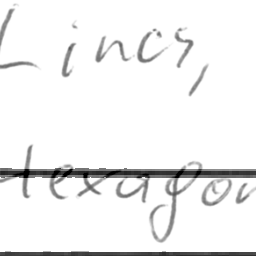 Lines,
Hexagon